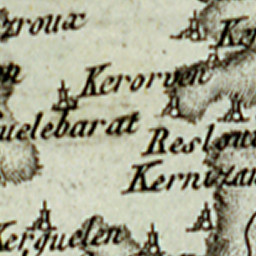 zroux
Ker
Kerorven
uelebarat
Reslou
Kernizan
Kerguelen